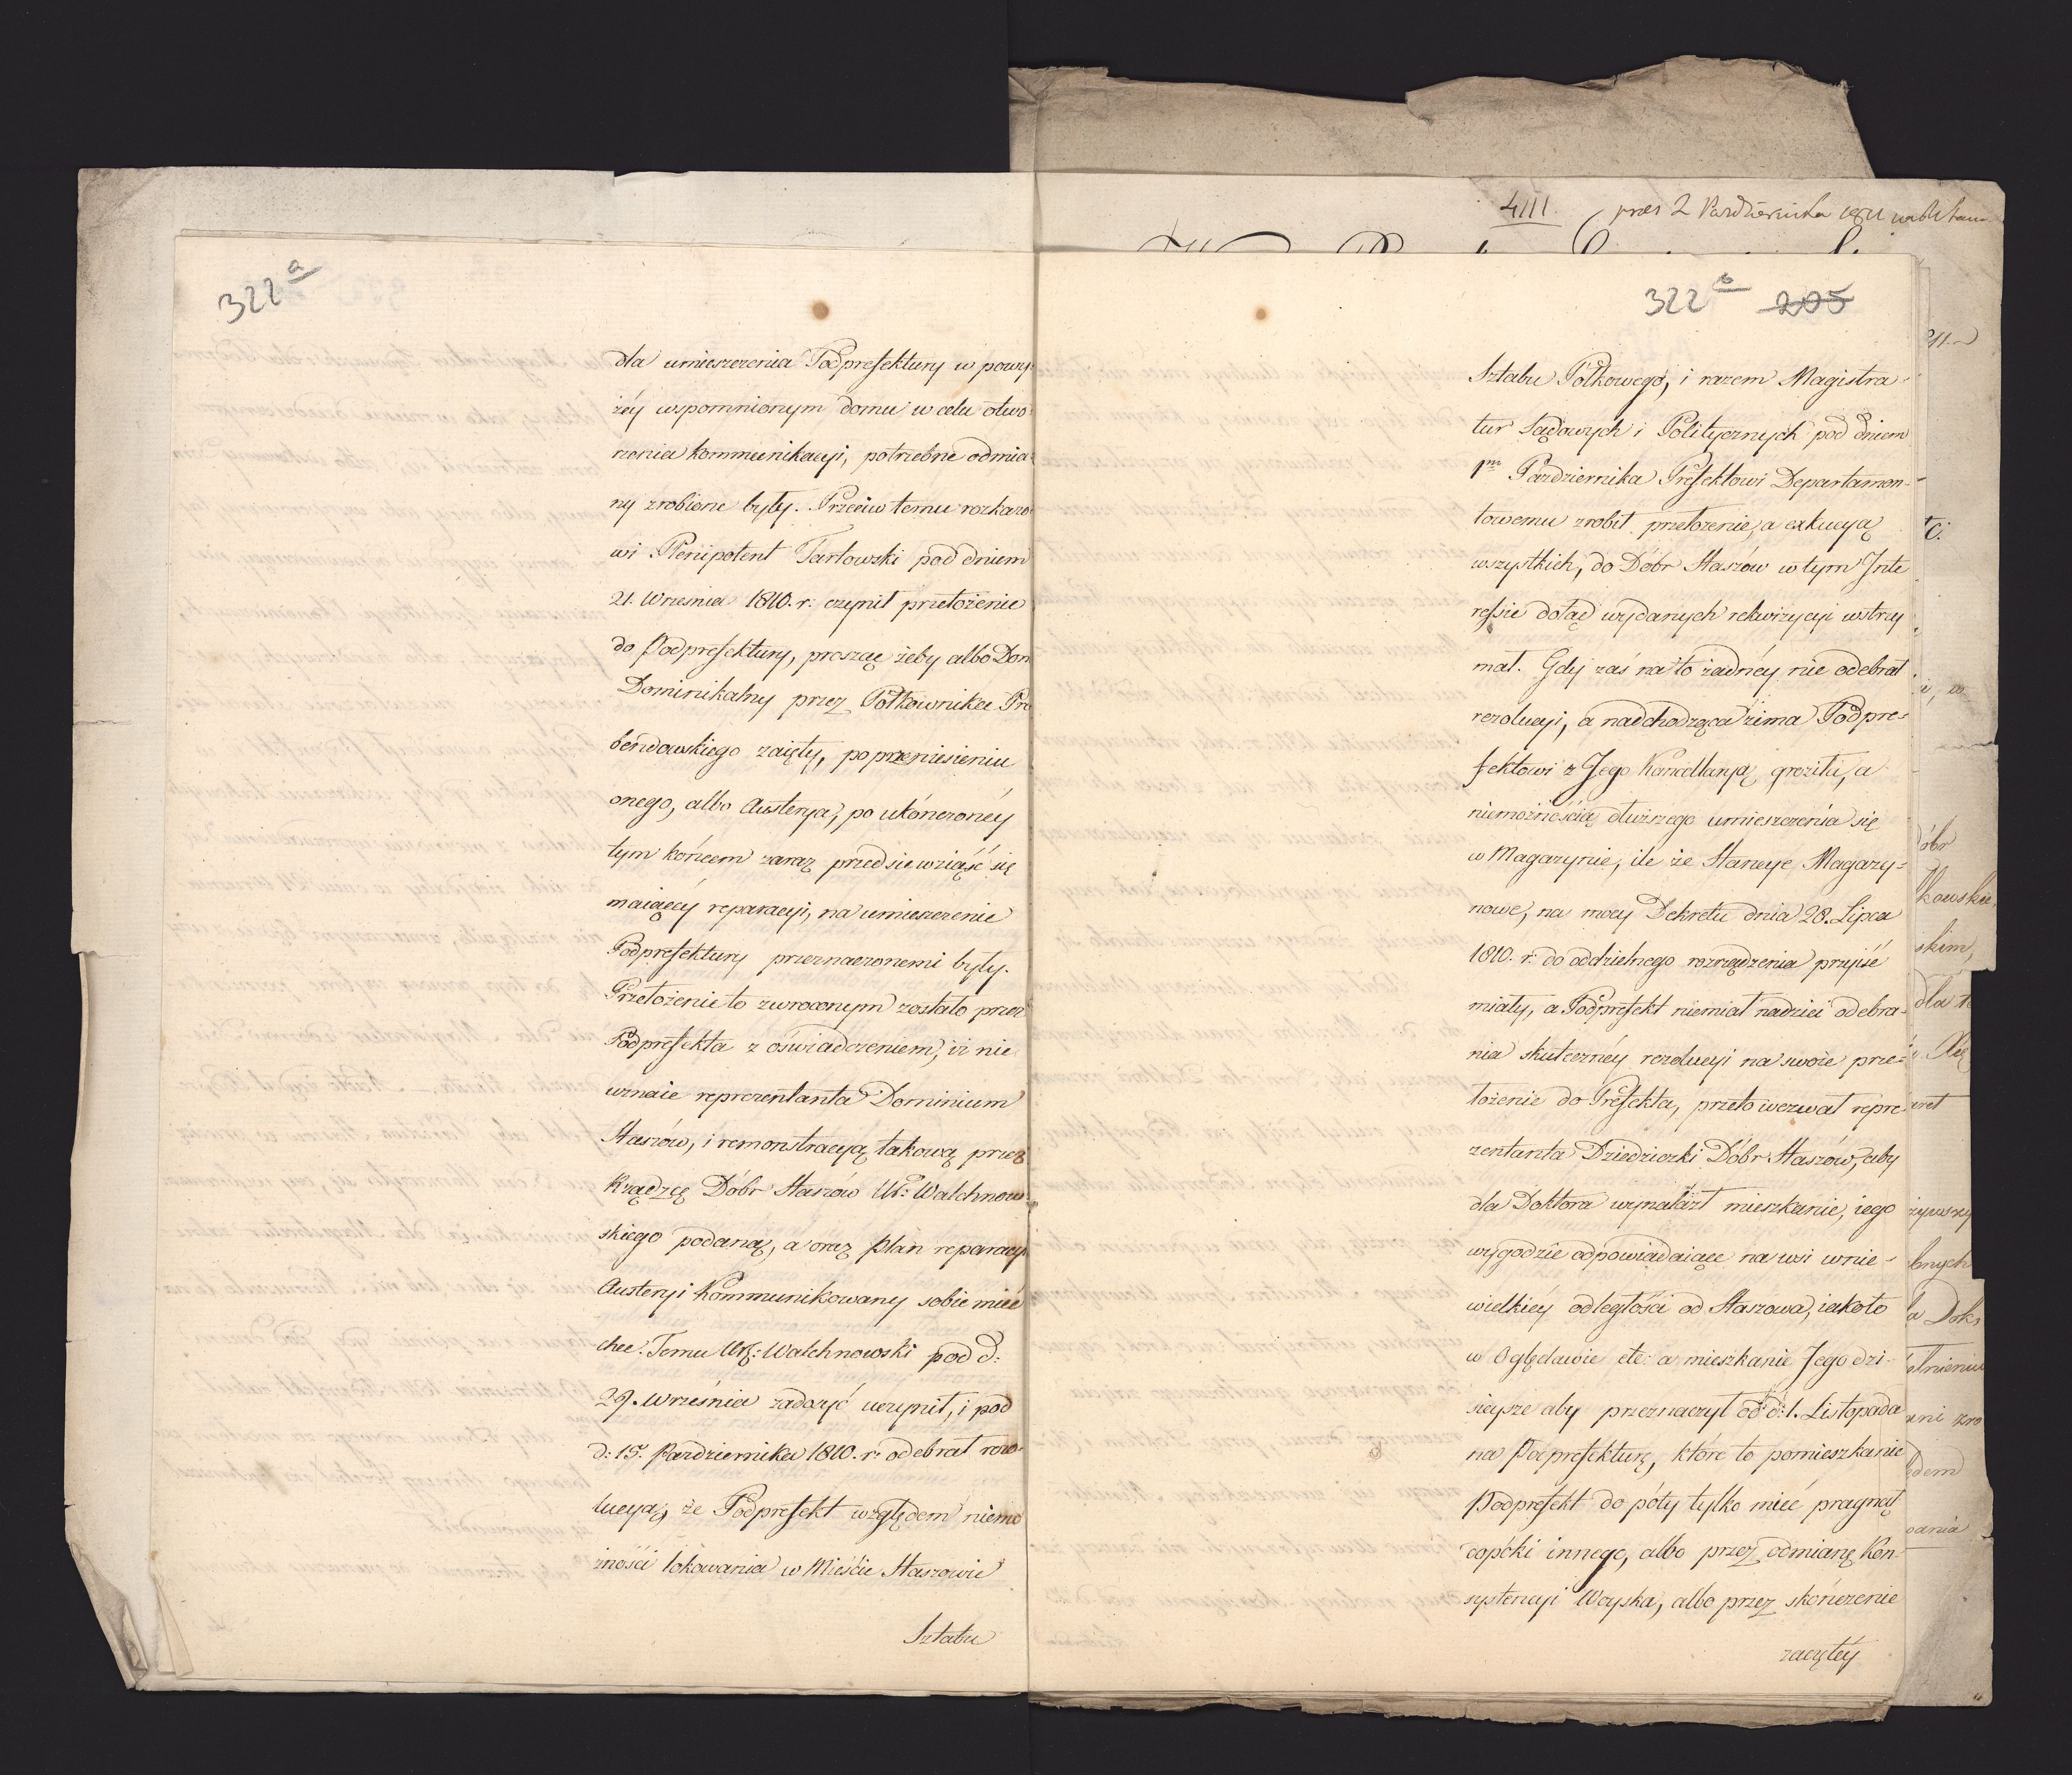 322 a
dla umieszczenia Podprefektury w powy
żéy wspomnionym domu w celu otwo
rzenia kommunikacyi, potrzebne odmia
ny zrobione były. Przeciw temu rozkazo
wi Plenipotent Tarłowski pod dniem
21. Wrzesnia 1810. r: czynił przełożenie
do Podprefektury, prosząc żeby albo Dom
Dominikalny przez Półkownika Pre
bendowskiego zaięty, po przeniesieniu
onego, albo Austerya, po ukończonéy
tym końcem zaraz przedsiewziąść się
maiącéy reparacyi, na umieszczenie
Podprefektury przeznaczonemi były.
Przełożenie to zwroconym zostało przez
Podprefekta z oświadczeniem, iż nie
uznaie reprezentanta Dominium
Staszów, i remonstracyą takową przez
Rządzcę Dóbr Staszów Ur: Walchnow-
skiego podaną, a oraz plan reparacyi
Austeryi kommunikowany sobie mieć
chce. Temu Ur: Walchnowski pod d:
29. Września zadosyć uczynił, i pod
d: 15. Pazdziernika 1810. r: odebrał rezo-
lucyą, że Podprefekt względem niemo
żności lokowania w Mieście Staszowie
Sztabu
4111. prez 2 Pazdziernika 1811
322 b 205
Sztabu Półkowego, i razem Magistra-
tur Sądowych i Politycznych pod dniem
1m Pazdziernika Prefektowi Departamen-
towemu zrobił przełożenie, a exkucyą
wszystkich, do Dóbr Staszów w tym Inte
ressie dotąd wydanych rekwizycyi wstrzy
mał. Gdy zaś na to żadnéy nie odebrał
rezolucyi, a nadchodząca zima Podpre-
fektowi z Jego Kancellaryą groziła, a
niemożnością dłuższego umieszczenia się
w Magazynie, ile że Stancye Magazy-
nowe, na mocy Dekretu dnia 28. Lipca
1810. r: do oddzielnego rozrządzenia przyiść
miały, a Podprefekt niemiał nadziei odebra-
nia skuteczney rezolucyi na swoie prze-
łożenie do Prefekta, przeto wezwał repre-
zentanta Dziedziczki Dóbr Staszów, aby
dla Doktora wynalazł mieszkanie, iego
wygodzie odpowiadaiące na wsi w nie-
wielkiéy odległości od Staszowa, iakoto
w Oględawie etc: a mieszkanie Jego dzi-
sieysze aby przeznaczył od d: 1. Listopada
na Podprefekturę, które to pomieszkanie
Podprefekt do póty tylko mieć pragnął
dopóki innego, albo przez odmianę Kon-
systencyi Woyska, albo przez skończenie
zaczętéy